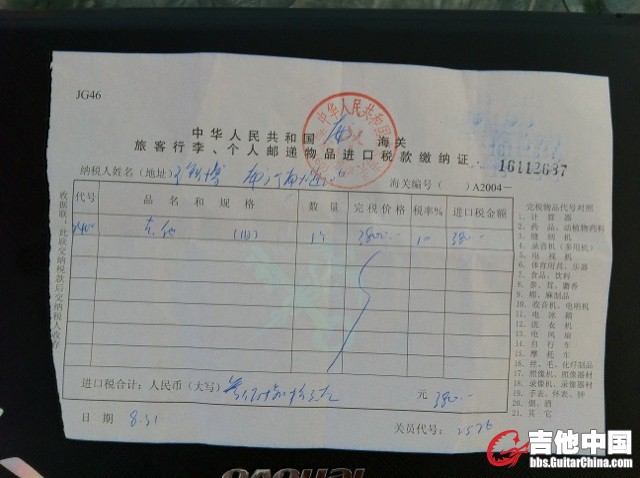 JG46
中华人民共和国 海关
旅客行李、个人邮递物品进口税款缴纳证
16112637
纳税人姓名（地址）
海关编号（ ）A2004—
收据联：此联交纳税款后交纳税人收存
代号 品名和规格 数量 完税价格 税率% 进口税金额
吉他 3800.- 10 380.-
进口税合计：人民币（大写） 元 380.-
日期 8.31
关员代号：2576
完税物品代号对照
1. 计算器
2. 药品、动植物药料
3. 缝纫机
4. 录音机（多用机）
5. 电视机
6. 体育用具、乐器
7. 食品、饮料
8. 参、茸、麝香
9. 棉、麻制品
10. 收音机、电唱机
11. 电冰箱
12. 洗衣机
13. 电风扇
14. 自行车
15. 摩托车
16. 丝、毛、化纤制品
17. 照像机、照像器材
18. 录像机、录像器材
19. 手表、怀表、钟
20. 烟、酒
21. 其它
吉他中国
bbs.GuitarChina.com